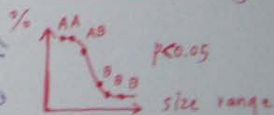 %
A A
AB
B B B
p<0.05
size range